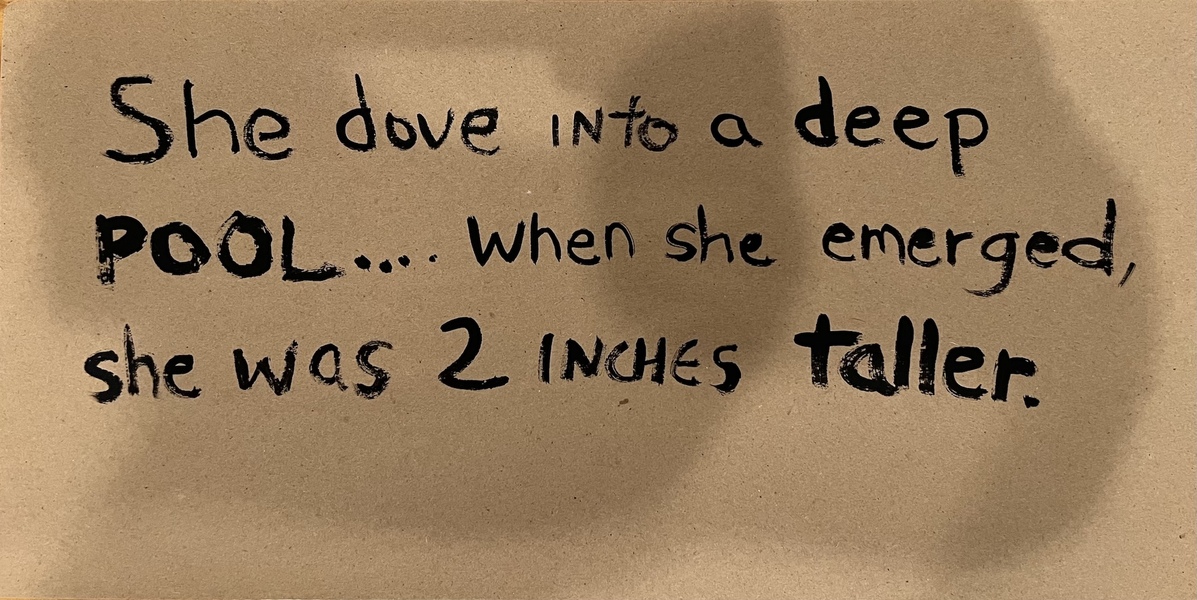 She dove INto a deep
POOL.... when she emerged,
she was 2 INCHES taller.